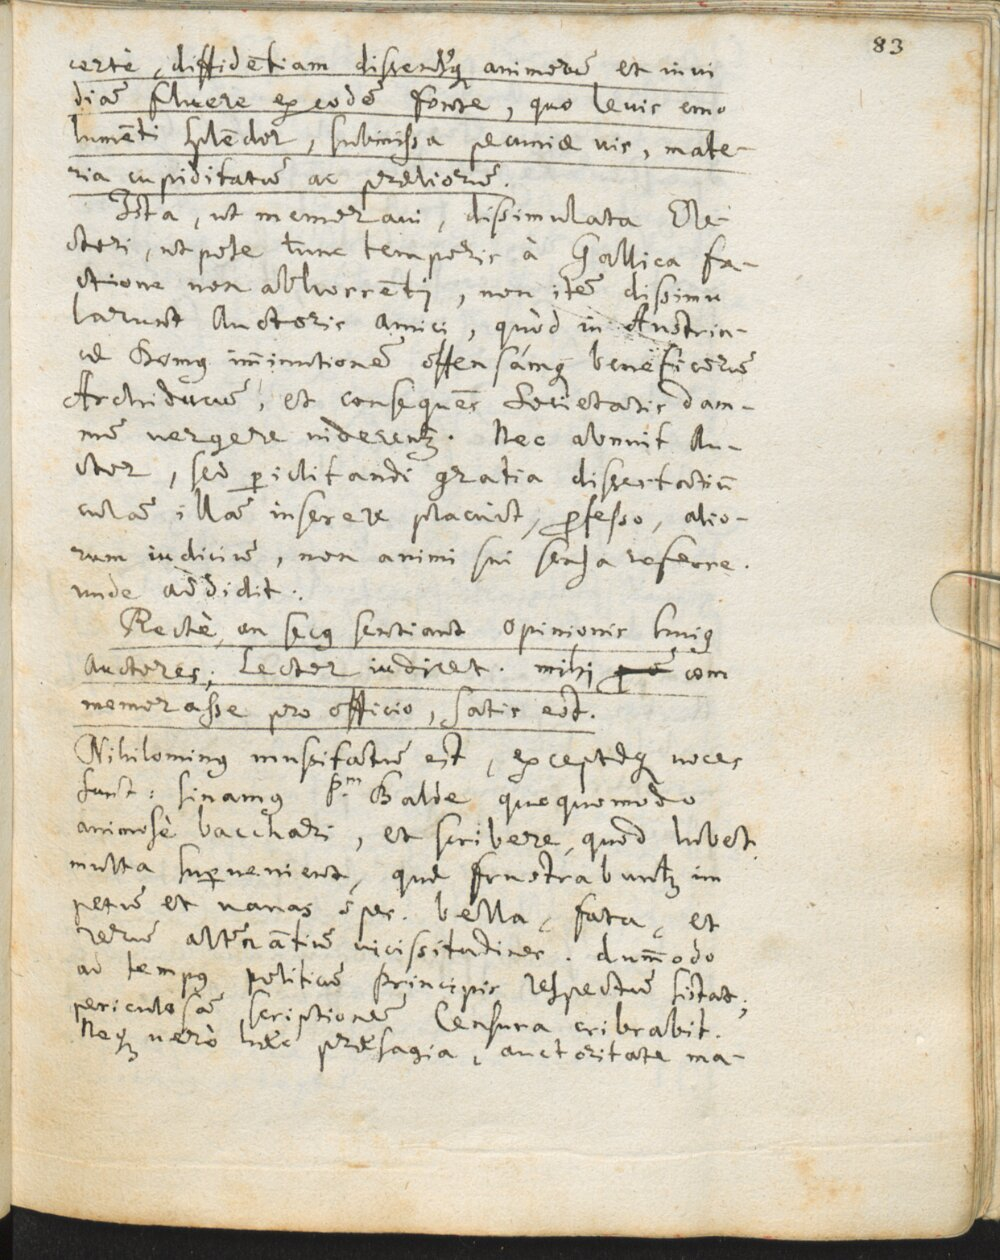 83
certè, diffidētiam dissensusq animorū et invi
diā fluere ex eodē fonte, quo levis emo
lumēti splēdor, submissa pecuniæ vis, mate-
ria cupiditatū ac præliorū.
Ista, ut memoravi, dissimulata Ele-
ctori, utpote tunc temporis à Gallica fa-
ctione non abhorrēti, non itē dissimu
larunt Auctoris amici, quòd in Austria-
cæ Domus iminutionē offensāmq beneficorū
Archiducū, et consequēs Societatis dam-
nū vergere viderent. Nec abnuit Au-
ctor, sed piclitandi gratia dissertatiū
culā illā inserere placuit, pfesso, alio-
rum iudiciū, non animi sui sensa referre.
unde addidit.
Rectè, an secus sentiant opinionis huius
Auctores; Lector iudicet. mihi com
memorasse pro officio, satis est.
Nihilominus mussitatū est, exceptæq voces
sunt: sinamus P.m Balde quoquomodo
animosè bacchari, et scribere, quod lubet.
multa supvenient, quæ frustrabunt im
petū et vanas spes. bella, fata, et
rerū alternātiū vicissitudines. dummodo
ad tempus politicū Principis respectū sistat;
periculosā scriptionē Censura cribrabit.
Neq verò hæc præsagia, auctoritate ma-